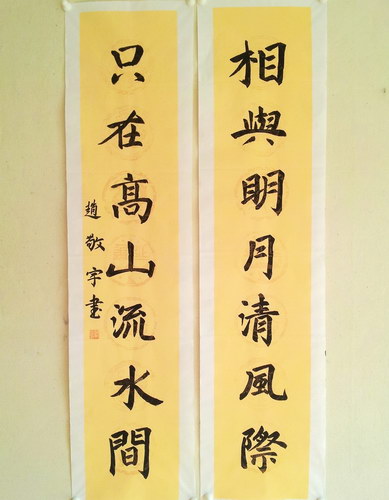 相與明月清風際
只在高山流水間
趙敬宇書